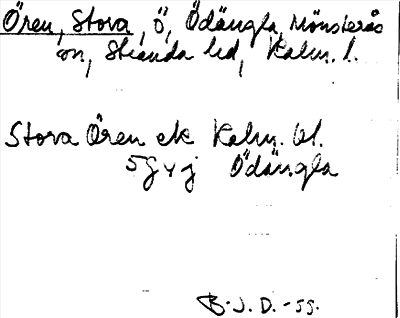 Ören, Stora, ö, Ödängla, Mönsterås
sn, Stranda hd, Kalm. l.
Stora Ören ek Kalm. bl.
5g v j Ödängla
B.J.D. -55.